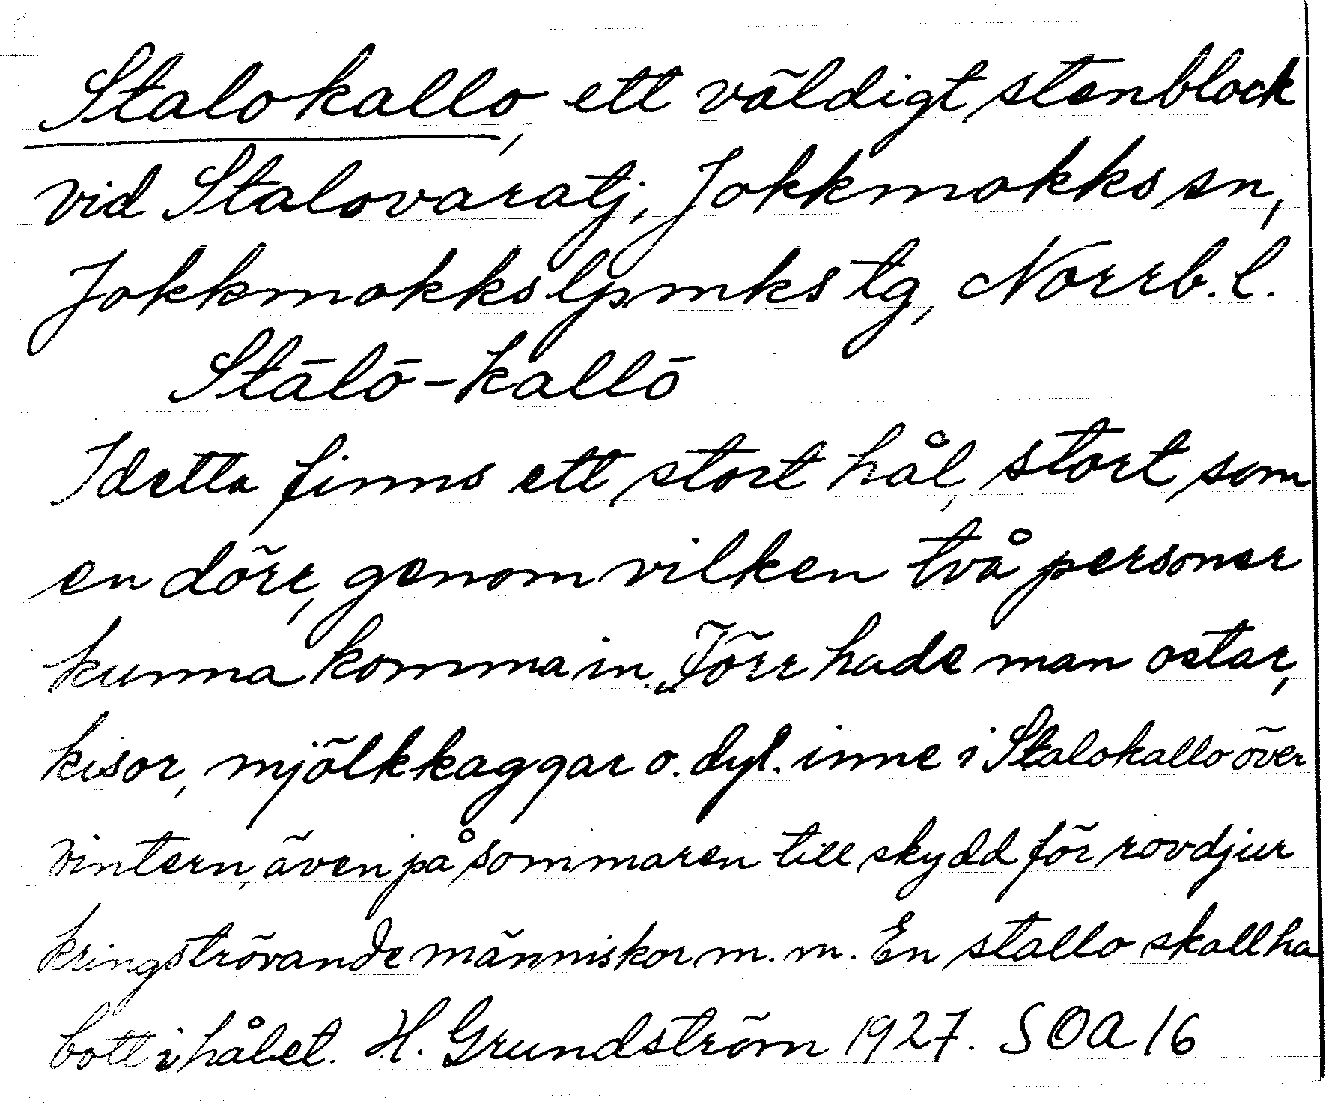 Stalokallo, ett väldigt stenblock
vid Stalovaratj, Jokkmokks sn,
Jokkmokks lpmks tg, Norrb. l.
Stālō-kallō
I detta finns ett stort hål, stort som
en dörr, genom vilken två personer
kunna komma in. Förr hade man ostar,
kisor, mjölkkaggar o. dyl. inne i Stalokallo över
vintern, även på sommaren till skydd för rovdjur
kringströvande människor m. m. En stallo skall ha
bott i hålet. H. Grundström 1927. SOA 16